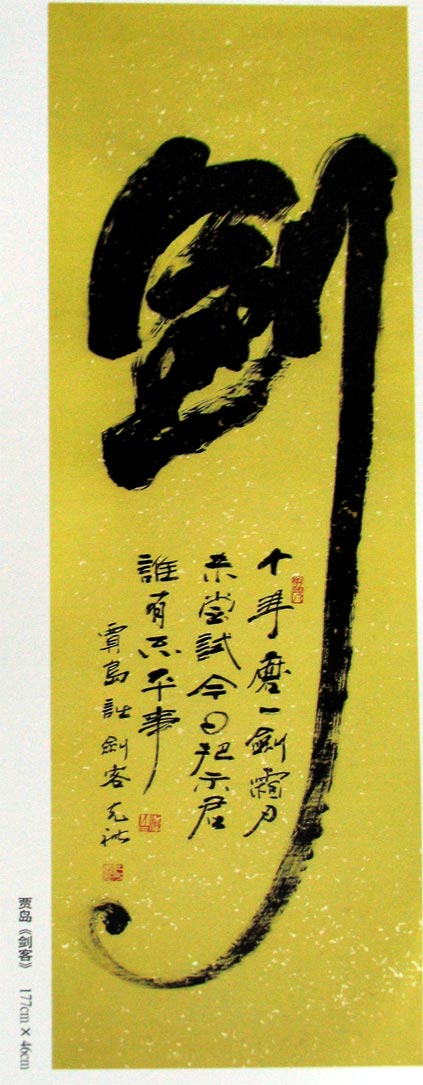 劍
十年磨一劍霜刃
未嘗試今日把示君
誰有不平事
賈島詩劍客克
贾岛《剑客》 177cm × 46cm